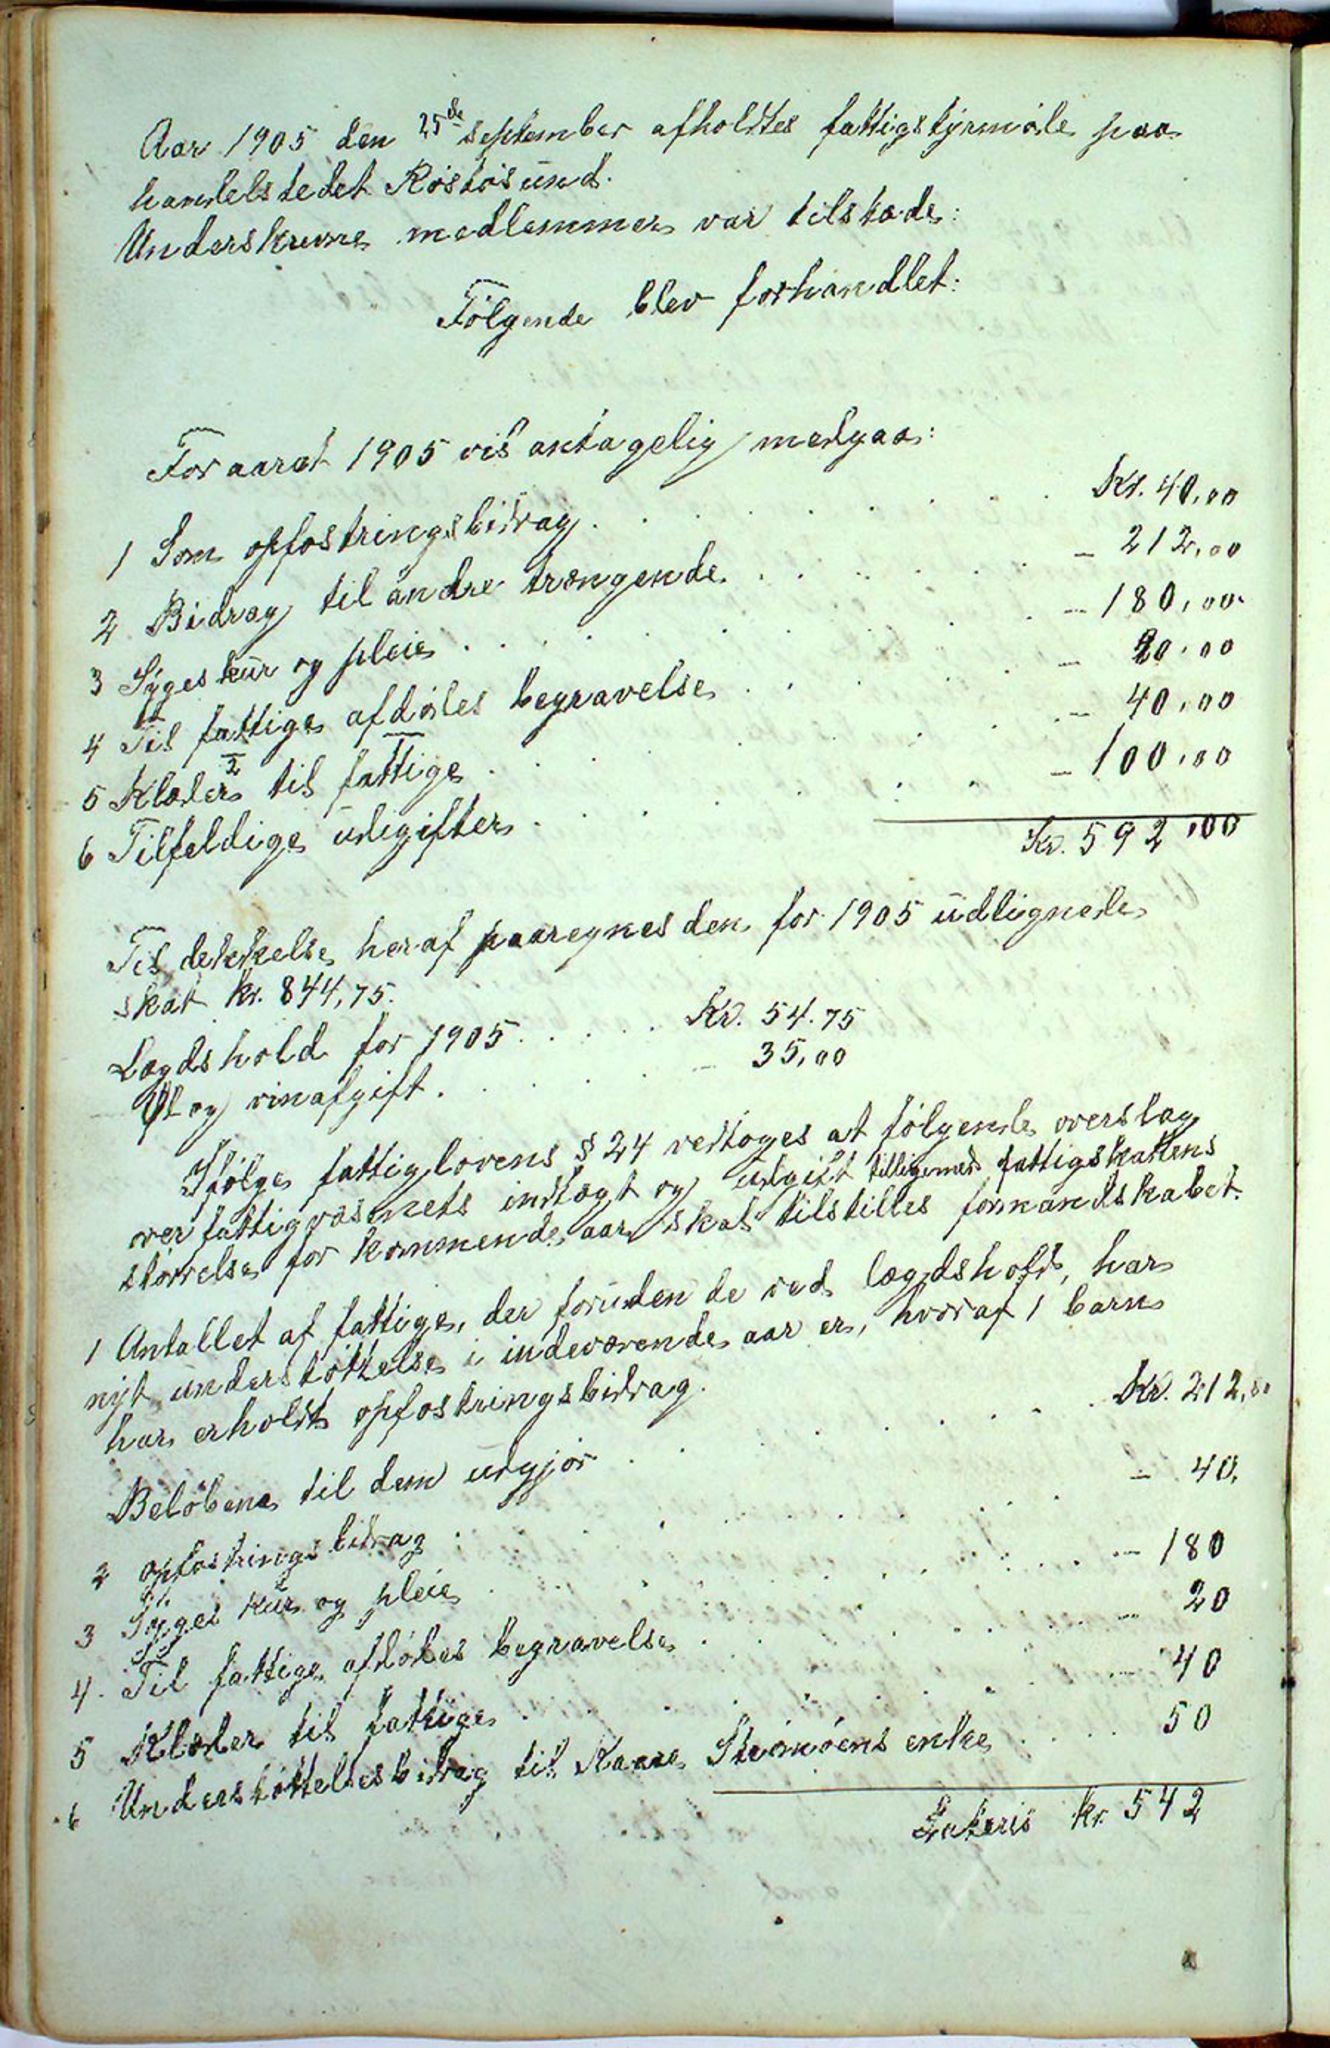 Aar 1905 den 25de september afholdtes fattigstyrmøde paa
handelstedet Röstösund.
Underskrevne medlemmer var tilstæde:
Følgende blev forhandlet:
For aaret 1905 vil antagelig medgaa:
1 Som opfostringsbidrag . . . . . . . Kr. 40,00
2 Bidrag til andre trængende . . . . . . – 212,00
3 Syges kur og pleie . . . . . . – 180,00
4 Til fattige afdødes begravelse . . . . . – 20,00
5 Klæder til fattige . . . . . – 40,00
6 Tilfeldige udgifter . . . . . – 100,00
Kr. 592,00
Til dækkelse heraf paaregnes den for 1905 udlignede
skat kr. 844,75.
Lægdshold for 1905 . . . . . Kr. 54.75
Øl og vinafgift . . . . . – 35,00
Ifølge fattiglovens § 24 vedtoges at følgende overslag
over fattigvæsnets indtægt og udgift tilligemed fattigskattens
størrelse for kommende aar skal tilstilles formandskabet.
1 Antallet af fattige, der foruden de ved lægdshold, har
nydt understøttelse i indeværende aar er, hvoraf 1 barn
har erholdt opfostringsbidrag.
Beløbene til dem udgjør . . . . . . Kr. 212,00
2 opfostringsbidrag . . . . . . – 40,
3 Syges kur og pleie . . . . . . – 180
4. Til fattige afdødes begravelse . . . . . – 20
5 Klæder til fattige . . . . . . – 40
6 Understøttelsesbidrag til Kaare enke . . . . 50
Lateris kr. 542